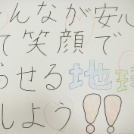 んなが安心
て笑顔で
らせる地球
しよう!!